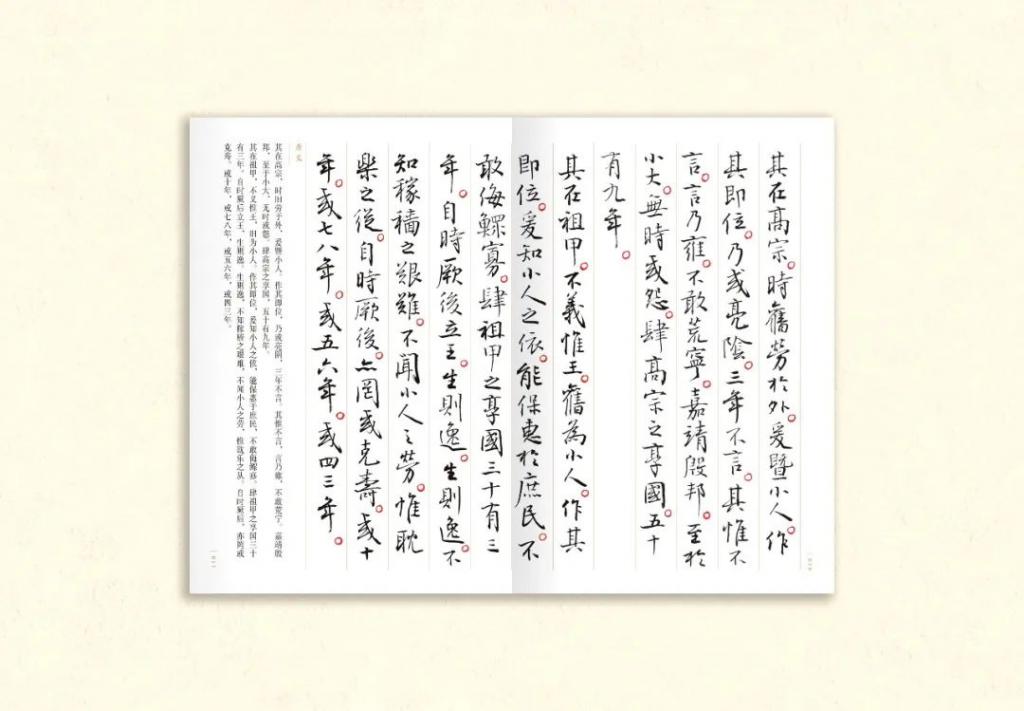 其在高宗。時舊勞於外。爰暨小人。作
其即位。乃或亮陰。三年不言。其惟不
言。言乃雍。不敢荒寧。嘉靖殷邦。至於
小大。無時或怨。肆高宗之享國。五十
有九年。
其在祖甲。不義惟王。舊為小人。作其
即位。爰知小人之依。能保惠於庶民。不
敢侮鰥寡。肆祖甲之享國三十有三
年。自時厥後立王。生則逸。生則逸。不
知稼穡之艱難。不聞小人之勞。惟耽
樂之從。自時厥後。亦罔或克壽。或十
年。或七八年。或五六年。或四三年。
其在高宗，时旧劳于外，爰暨小人。作其即位，乃或亮阴，三年不言。其惟不言，言乃雍。不敢荒宁，嘉靖殷
邦。至于小大，无时或怨。肆高宗之享国，五十有九年。
其在祖甲，不义惟王，旧为小人。作其即位，爰知小人之依，能保惠于庶民，不敢侮鳏寡。肆祖甲之享国三十
有三年。自时厥后立王，生则逸，生则逸，不知稼穑之艰难，不闻小人之劳，惟耽乐之从。自时厥后，亦罔或
克寿。或十年，或七八年，或五六年，或四三年。